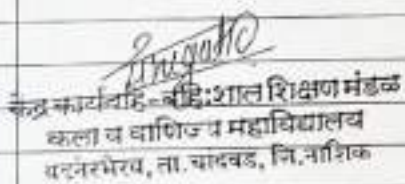 केंद्र कार्यवाह-बहि:शाल शिक्षण मंडळ
कला व वाणिज्य महाविद्यालय
वडनेरभैरव, ता. चांदवड, जि. नाशिक